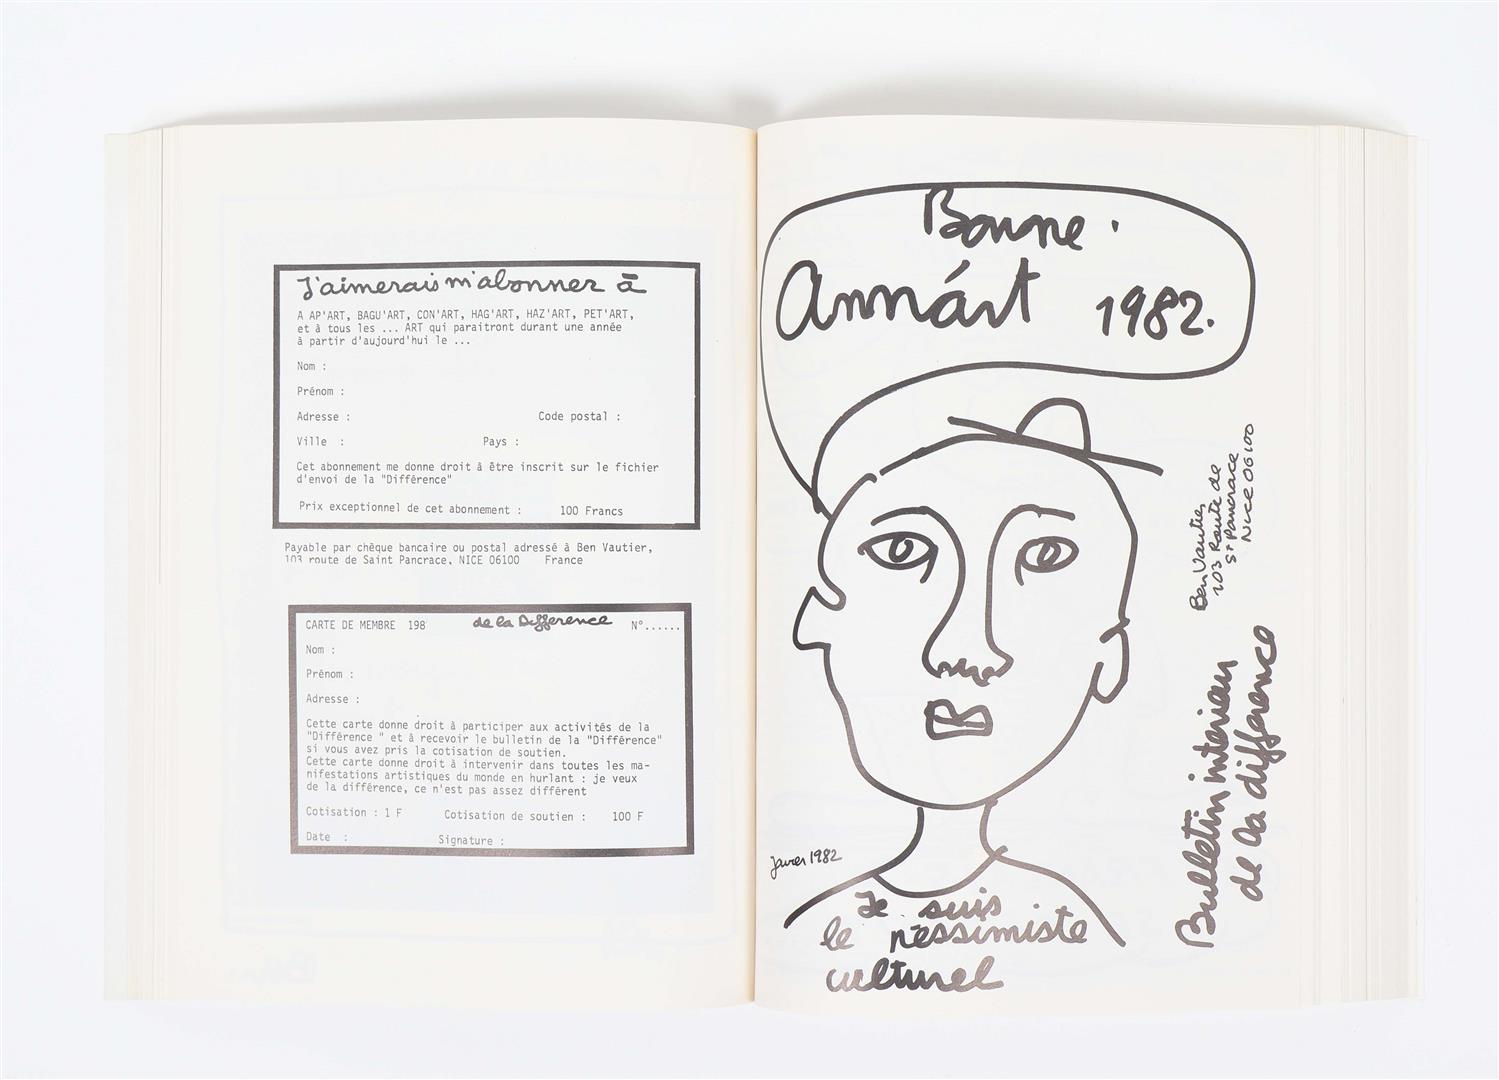 J'aimerais m'abonner à
A AP'ART, BAGU'ART, CON'ART, HAG'ART, HAZ'ART, PET'ART,
et à tous les ... ART qui paraitront durant une année
à partir d'aujourd'hui le ...
Nom :
Prénom :
Adresse : Code postal :
Ville : Pays :
Cet abonnement me donne droit à être inscrit sur le fichier
d'envoi de la "Différence"
Prix exceptionnel de cet abonnement : 100 Francs
Payable par chèque bancaire ou postal adressé à Ben Vautier,
103 route de Saint Pancrace, NICE 06100 France
CARTE DE MEMBRE 198 de la Difference N°......
Nom :
Prénom :
Adresse :
Cette carte donne droit à participer aux activités de la
"Différence " et à recevoir le bulletin de la "Différence"
si vous avez pris la cotisation de soutien.
Cette carte donne droit à intervenir dans toutes les ma-
nifestations artistiques du monde en hurlant : je veux
de la différence, ce n'est pas assez différent
Cotisation : 1 F Cotisation de soutien : 100 F
Date : Signature :
Bonne
Annárt 1982.
Ben Vautier
103 Route de
St Pancrace
Nice 06100
Bulletin interieur
de la difference
Janvier 1982
Je suis
le
culturel